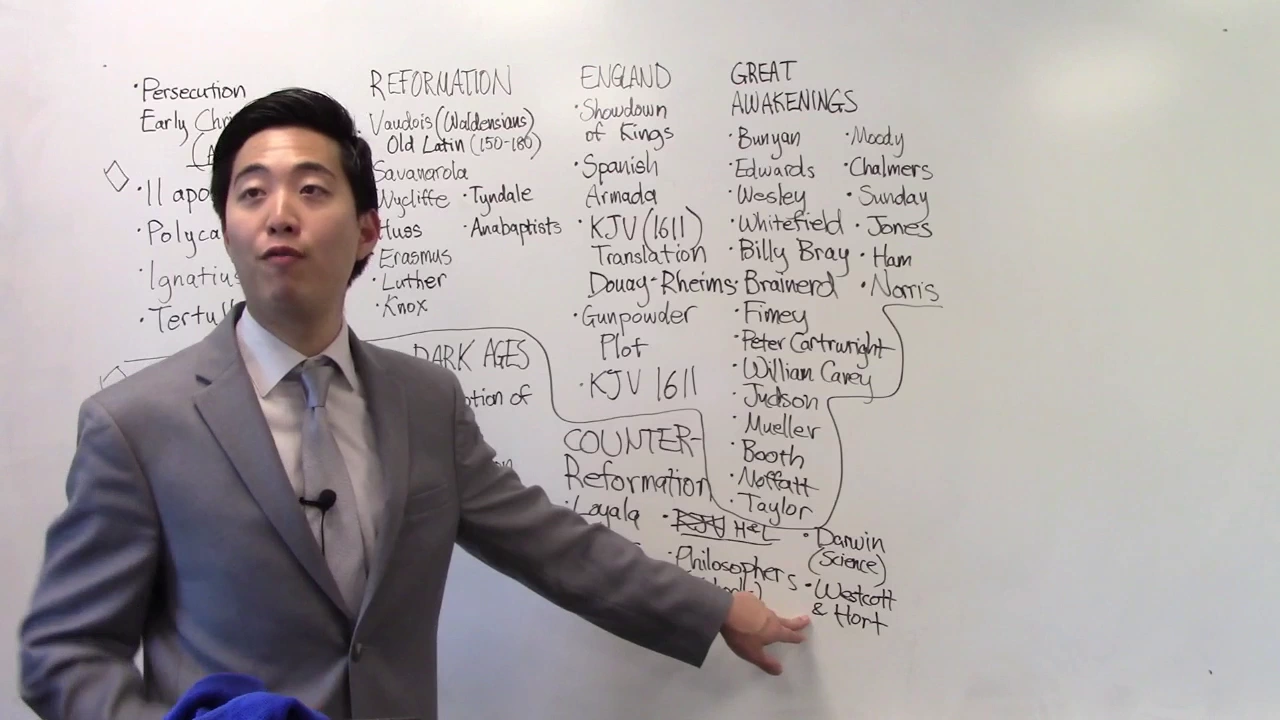 ·Persecution
Early
·11
·
·Ignatius
·
REFORMATION
Vaudois (Waldensians)
Old Latin (150-180)
Savanarola
Wycliffe
·Tyndale
Huss
·Anabaptists
·Erasmus
·Luther
·Knox
DARK AGES
of
ENGLAND
·Showdown
of Kings
·Spanish
Armada
·KJV (1611)
Translation
Douay-Rheims
·Gunpowder
Plot
·KJV 1611
COUNTER-
Reformation
·Loyala
·H&L
·Philosophers
GREAT
AWAKENINGS
·Bunyan
·Edwards
·Wesley
·Whitefield
·Billy Bray
·Brainerd
·Finney
·Peter Cartwright
·William Carey
·Judson
·Mueller
·Booth
·Moffatt
·Taylor
·Moody
·Chalmers
·Sunday
·Jones
·Ham
·Norris
·Darwin
(Science)
·Westcott
& Hort